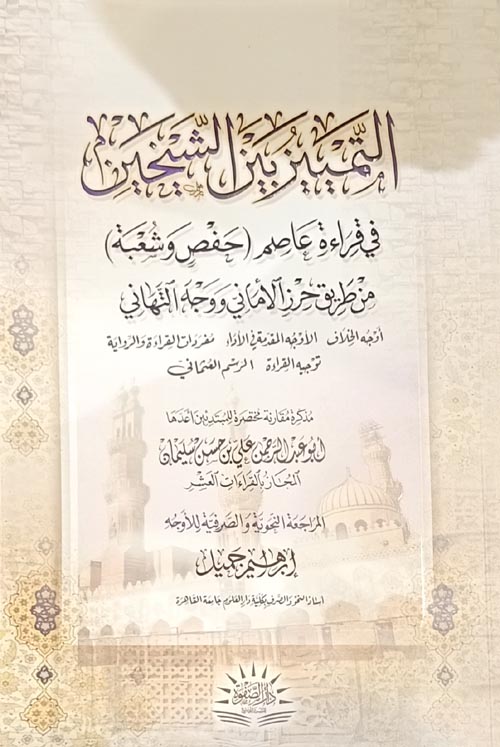 التَّمْيِيزُ بَيْنَ الشَّيْخَيْنِ
في قراءة عاصم (حفص وشعبة)
من طريق حرز الأماني ووجه التهاني
أوجه الخلاف الأوجه المقدمة في الأداء مفردات القراءة والرواية
توجيه القراءة الرسم العثماني
مذكرة مقارنة مختصرة للمبتدئين أعدها
أبو عبد الرحمن علي بن حسن سليمان
المجاز بالقراءات العشر
المراجعة النحوية والصرفية للأوجه
إبراهيم جميل
أستاذ النحو والصرف بكلية دار العلوم جامعة القاهرة
دار الصفوة